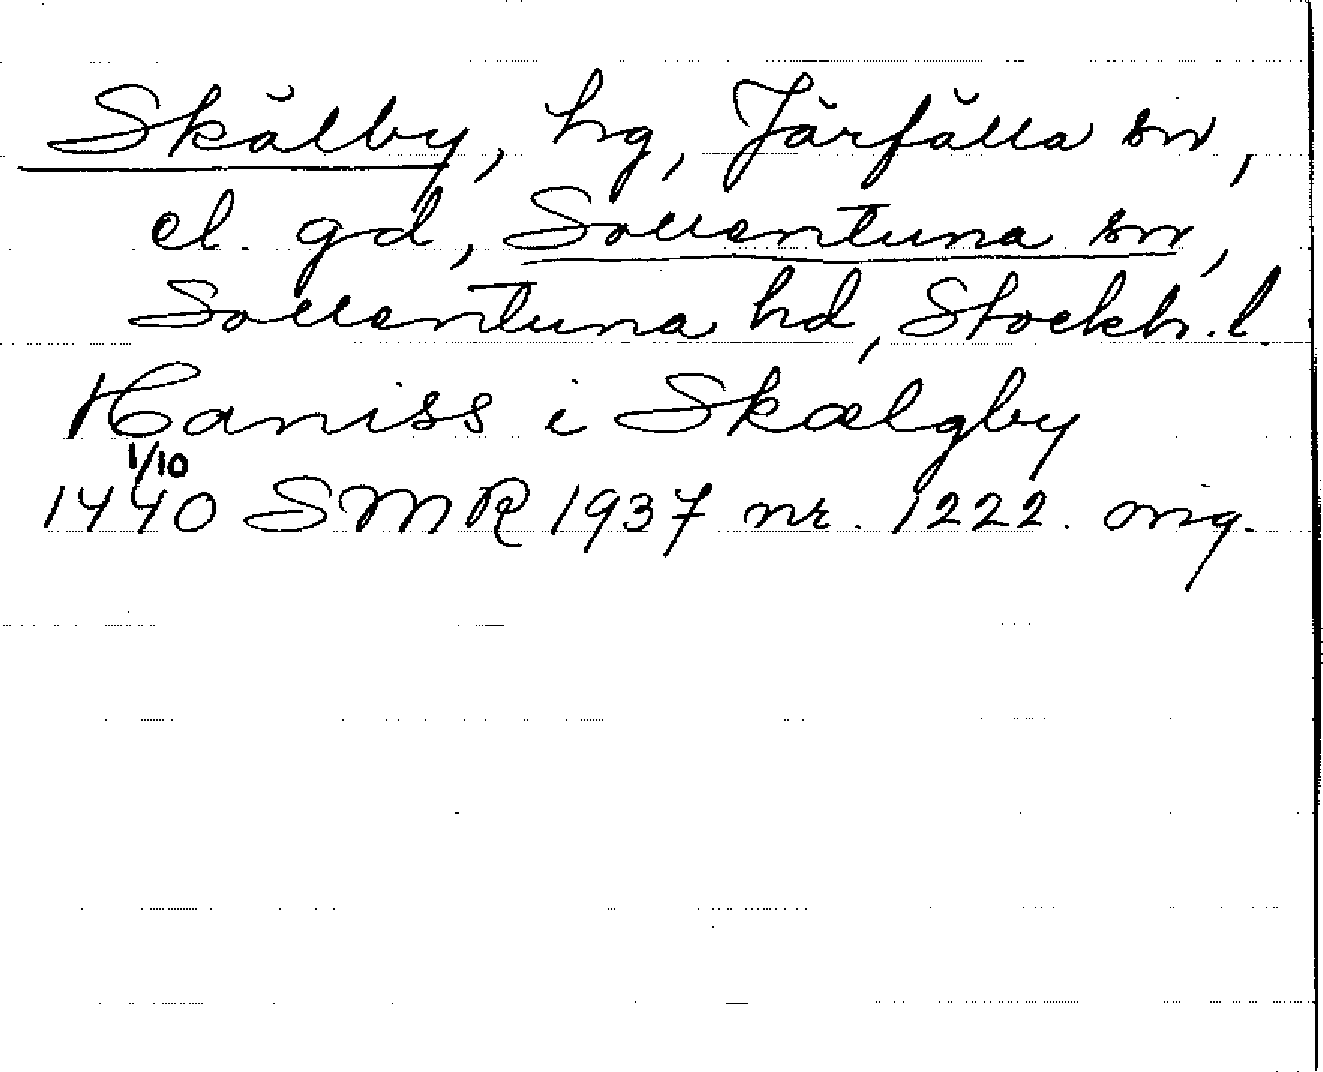 Skälby, hg, Järfälla sn,
el. gd, Sollentuna sn,
Sollentuna hd, Stockh. l.
Haniss i Skælgby
1/10
1440 SMR 1937 nr. 1222. orig.